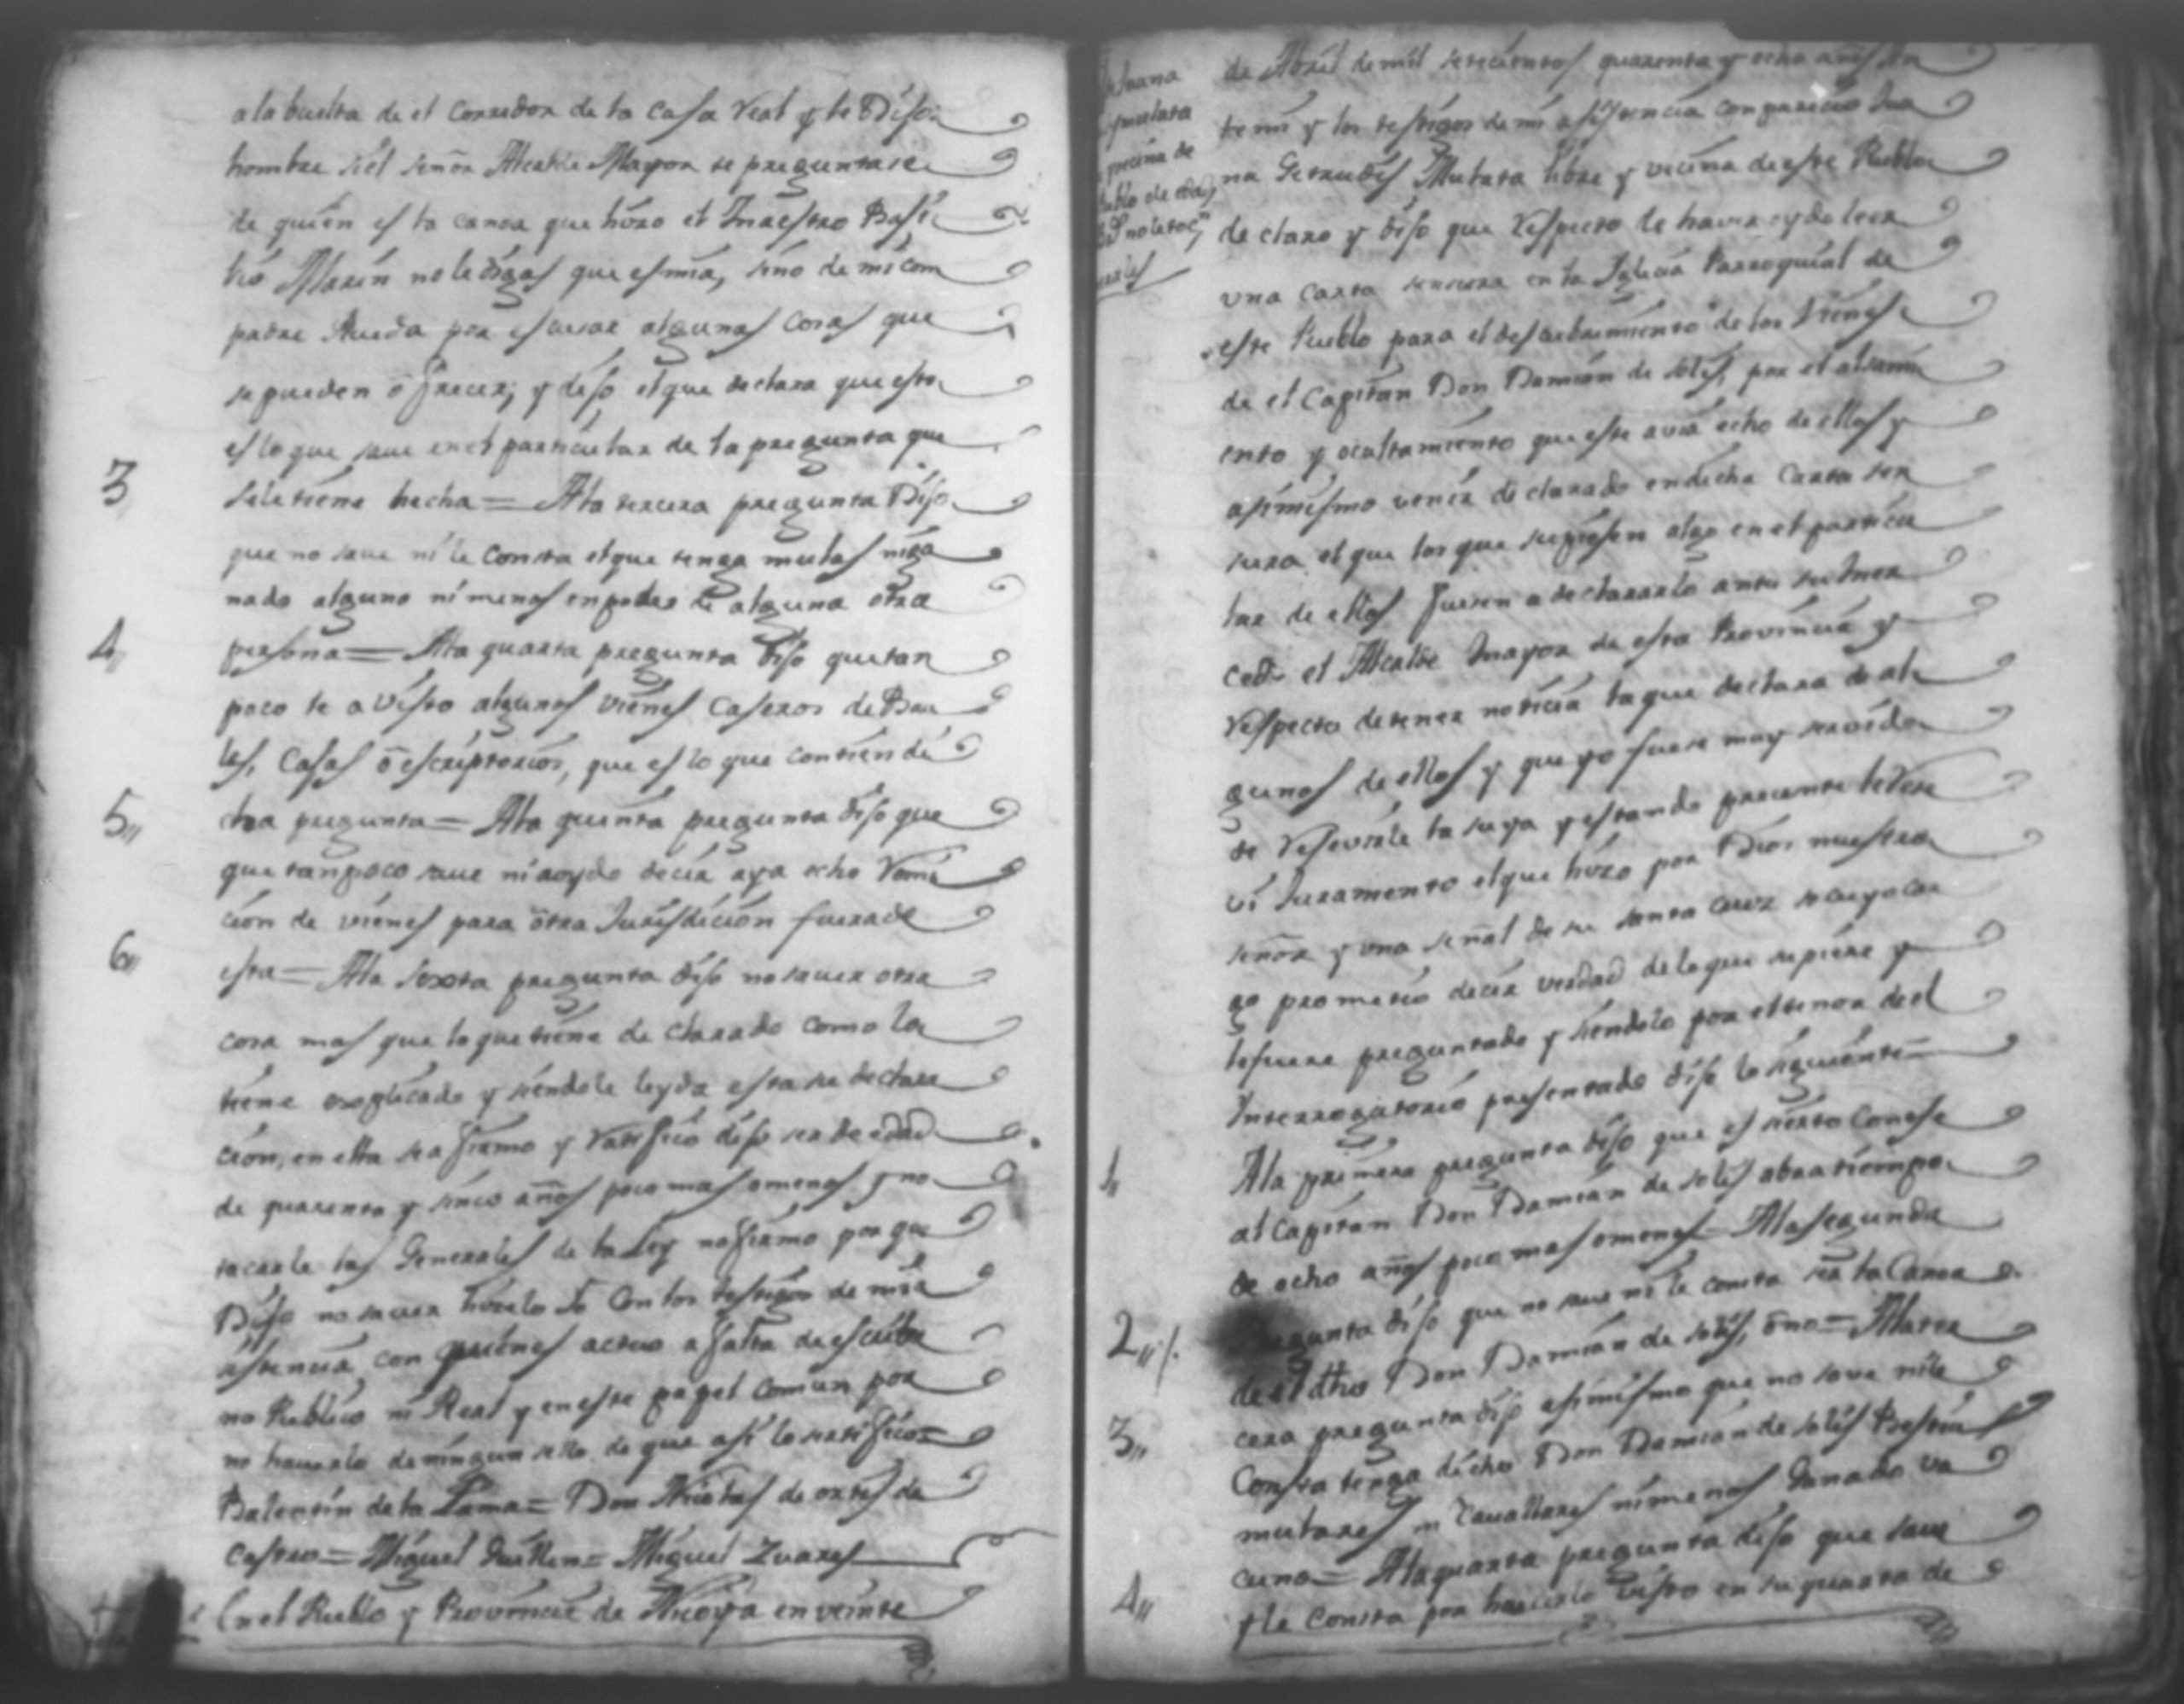 a la buelta de el Corredor de la Casa Real y le Dijo
hombre si el señor Alcalde Mayor te preguntare
de quien es la canoa que hizo el Maestro Basi
lio Marin no le digas que es mia, sino de mi com
padre Rueda por escusar algunas cosas que
se pueden ofrecer; y dijo el que declara que esto
es lo que save en el particular de la pregunta que
3 se le tiene hecha = A la tercera pregunta Dijo
que no save ni le consta el que tenga mulas ni ga
nado alguno ni menos en poder de alguna otra
4,, persona = A la quarta pregunta dijo que tan
poco le a visto algunos vienes caseros de Bau
les, Casas o escriptorios, que es lo que contiene di
5,, cha pregunta = A la quinta pregunta dijo que
que tanpoco save ni a oydo decir aya echo Remi
cion de vienes para otra Jurisdicion fuera de
6,, esta = A la sexta pregunta dijo no saver otra
cosa mas que lo que tiene declarado como lo
tiene expplicado y siendole leyda esta su declara
cion, en ella se afirmo y Ratifico dijo ser de edad
de quarenta y sinco años poco mas o menos y no
tocarle las Generales de la Ley no firmo por que
Dijo no saver hizelo Yo con los testigos de mi a
sistencia con quienes actuo a falta de escriba
no Publico ni Real y en este papel comun por
no haverlo de ningun sello de que asi lo sertifico =
Balentin de la Lama = Don Nicolas de ortis de
Castro = Miguel Guillen = Miguel Zuares
En el Pueblo y Provincia de Nicoya en veinte
de Abril de mil setecientos quarenta y ocho años An
te mi y los testigos de mi asistencia comparecio Jua
na Getrudis Mulata libre y vecina de este Pueblo
declaro y dijo que Respecto de haver oydo leer
una carta sensura en la Iglecia Parroquial de
este Pueblo para el descubrimiento de los vienes
de el Capitan Don Damian de solis, por el alsami
ento y ocultamiento que este avia echo de ellos y
asimismo venir declarado en dicha Carta sen
sura el que los que supiesen algo en el particu
lar de ellos fuesen a declararlo ante su mer
ced el Alcalde mayor de esta Provincia y
Respecto de tener noticia la que declara de al
gunos de ellos y que yo fuese muy servido
de Resevirle la suya y estando presente le Rese
vi Juramento el que hizo por Dios nuestro
señor y una señal de su santa cruz so cuyo car
go prometio decir verdad de lo que supiere y
le fuere preguntado y siendolo por el tenor de el
Interrogatorio presentado dijo lo siguiente =
1,, A la primera pregunta dijo que es sierto conose
al capitan Don Damian de solis abra tiempo
de ocho años poco mas o menos = A la segunda
2,, pregunta dijo que no save ni le consta sea la Canoa
de el dicho Don Damian de solis, o no = A la ter
3,, cera pregunta dijo asimismo que no save ni le
Consta tenga dicho Don Damian de solis Bestias
mulares ni cavallares ni menos Ganado va
cuno = A la quarta pregunta dijo que save
4,, y le consta por haverlo visto en su quarto de